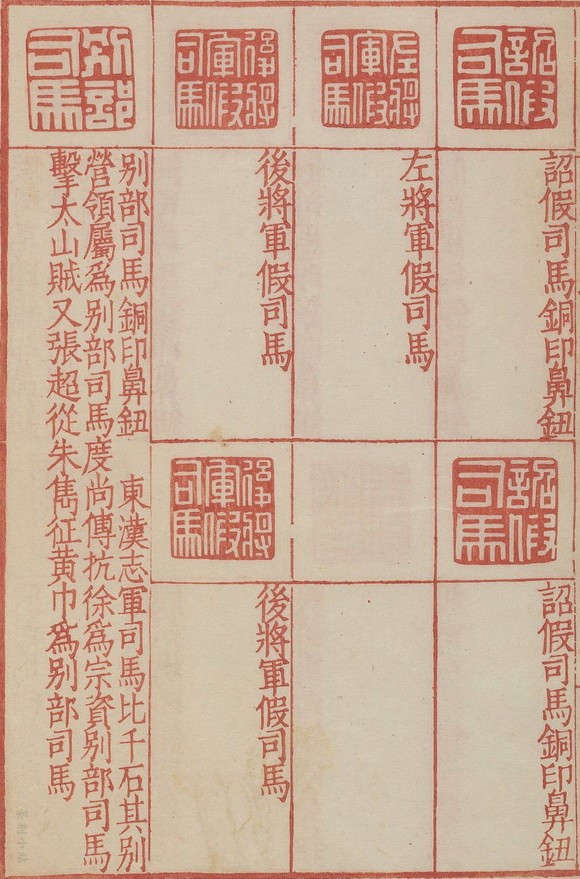 詔假司馬
詔假司馬銅印鼻鈕
詔假司馬
詔假司馬銅印鼻鈕
左將軍假司馬
左將軍假司馬
後將軍假司馬
後將軍假司馬
後將軍假司馬
後將軍假司馬
別部司馬
别部司馬銅印鼻鈕 東漢志軍司馬比千石其别
營領屬爲别部司馬度尚傳抗徐爲宗資别部司馬
擊太山賊又張超從朱雋征黃巾爲别部司馬